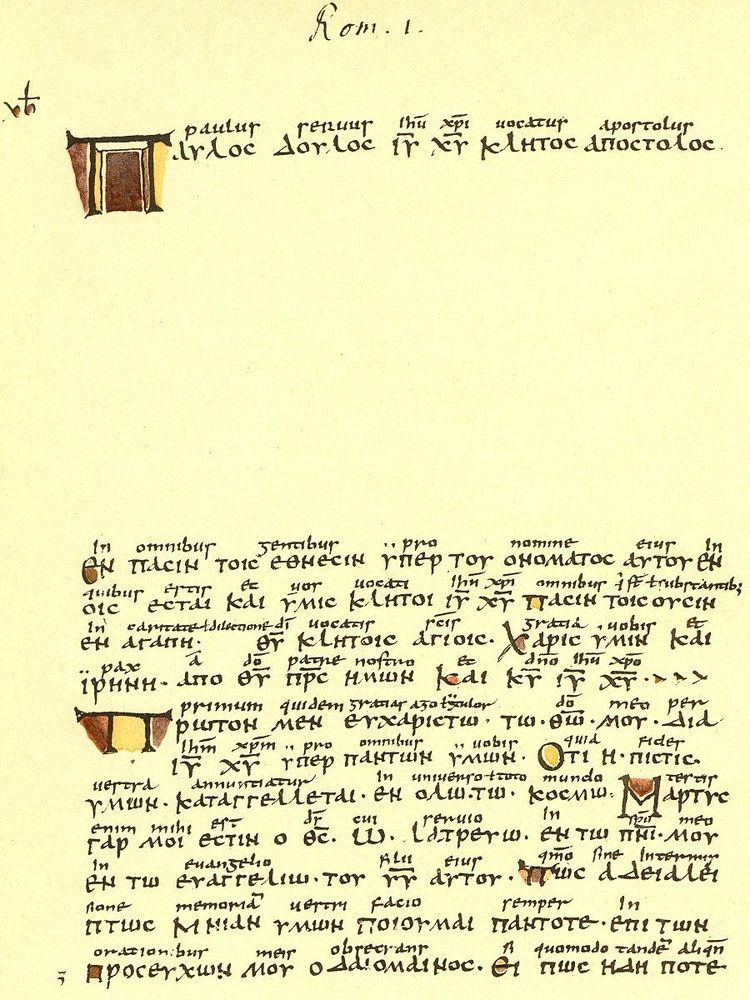 Rom. 1.
paulus seruus ihū xpi uocatus apostolus
ΠΑΥΛΟC ΔΟΥΛΟC ΙΥ̅ ΧΥ̅ ΚΛΗΤΟC ΑΠΟCΤΟΛΟC.
In omnibus gentibus pro nomine eius In
ΕΝ ΠΑCΙΝ ΤΟΙC ΕΘΝΕCΙΝ ΥΠΕΡ ΤΟΥ ΟΝΟΜΑΤΟC ΑΥΤΟΥ ΕΝ
quibus estis et uos uocati ihū xpi omnibus
ΟΙC ΕCΤΑΙ ΚΑΙ ΥΜΙC ΚΛΗΤΟΙ ΙΥ̅ ΧΥ̅ ΠΑCΙΝ ΤΟΙC ΟΥCΙΝ
In caritate ł dilectione dī uocatis scīs gratia uobis et
ΕΝ ΑΓΑΠΗ· ΘΥ̅ ΚΛΗΤΟΙC ΑΓΙΟΙC· ΧΑΡΙC ΥΜΙΝ ΚΑΙ
pax a dō patre nostro et dno ihū xpo
ΙΡΗΝΗ· ΑΠΟ ΘΥ̅ ΠΡ̅C ΗΜΩΝ ΚΑΙ ΚΥ̅ ΙΥ̅ ΧΥ̅·
primum quidem gratias ago dō meo per
ΠΡΩΤΟΝ ΜΕΝ ΕΥΧΑΡΙCΤΩ· ΤΩ· ΘΩ̅· ΜΟΥ· ΔΙΑ
ihm̄ xpm̄ pro omnibus uobis quia fides
ΙΥ̅ ΧΥ̅ ΥΠΕΡ ΠΑΝΤΩΝ ΥΜΩΝ· ΟΤΙ Η· ΠΙCΤΙC·
uestra annuntiatur In uniuerso ł toto mundo testis
ΥΜΩΝ· ΚΑΤΑΓΓΕΛΛΕΤΑΙ· ΕΝ ΟΛΩ·ΤΩ· ΚΟCΜΩ· ΜΑΡΤΥC
enim mihi est dī cui seruio In spū meo
ΓΑΡ ΜΟΙ ΕCΤΙΝ Ο ΘC̅· Ω· ΛΑΤΡΕΥΩ· ΕΝ ΤΩ ΠΝΙ̅·ΜΟΥ
In euangelio filii eius qmō sine Intermis
ΕΝ ΤΩ ΕΥΑΓΓΕΛΙΩ·ΤΟΥ ΥΥ̅ ΑΥΤΟΥ· ΠΩC ΑΔΕΙΑΛΕΙ
sione memoriā uestri facio semper In
ΠΤΩC ΜΝΙΑΝ ΥΜΩΝ ΠΟΙΟΥΜΑΙ ΠΑΝΤΟΤΕ·ΕΠΙ ΤΩΝ
orationibus meis obsecrans si quomodo tandē aliqn̄
ΠΡΟCΕΥΧΩΝ ΜΟΥ Ο ΔΑΙΟΜΑΙΝΟC· ΕΙ ΠΩC ΗΔΗ ΠΟΤΕ